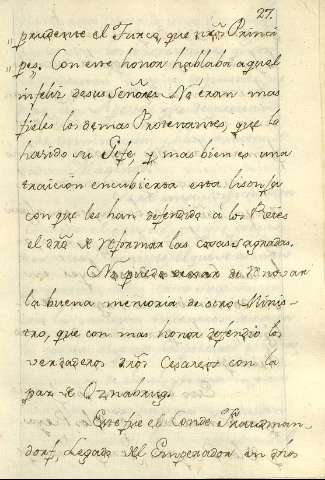 27.
prudente el Turco, que nrõs Princi
„pes„. Con este honor hablaba aquel
infeliz de sus Señores. No eran mas
fieles los demas Protestantes, que lo
ha sido su Gefe, y mas bien es una
traicion encubierta esta lisonja
con que les han defendido á los Reies
el drõ de reformar las cosas sagradas.
No puedo cesar de renovar
la buena memoria de otro Minis-
tro, que con mas honor defendio los
verdaderos drõs Cesareos con la
paz de Oznabrug.
Este fue el Conde Trautman-
dorf, Legado del Emperador en